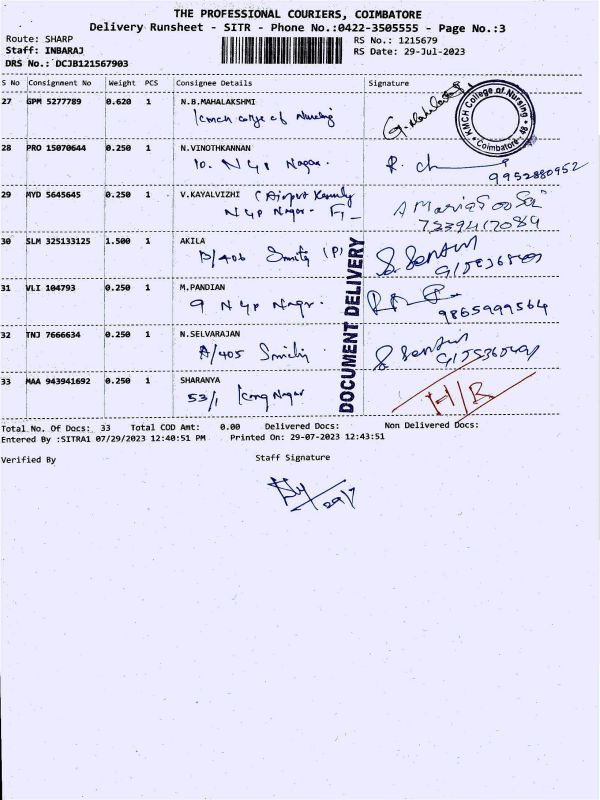 THE PROFESSIONAL COURIERS, COIMBATORE
Delivery Runsheet - SITR - Phone No.:0422-3505555 - Page No.:3
Route: SHARP RS No.: 1215679
Staff: INBARAJ RS Date: 29-Jul-2023
DRS No.: DCJB121567903
S No Consignment No Weight PCS Consignee Details Signature
27 GPM 5277789 0.620 1 N.B.MAHALAKSHMI
kmch college of Nursing
KMCH College of Nursing
Coimbatore - 48
28 PRO 15070644 0.250 1 N.VINOTHKANNAN
10. N G P Nagar.
9952880952
29 MYD 5645645 0.250 1 V.KAYALVIZHI
N G P Nagar -
7339417089
30 SLM 325133125 1.500 1 AKILA
(P)
31 VLI 104793 0.250 1 M.PANDIAN
9 N G P Nagar.
9865999564
32 TNJ 7666634 0.250 1 N.SELVARAJAN
A/405
33 MAA 943941692 0.250 1 SHARANYA
53/1 Nagar
DOCUMENT DELIVERY
Total No. Of Docs: 33 Total COD Amt: 0.00 Delivered Docs: Non Delivered Docs:
Entered By :SITRA1 07/29/2023 12:40:51 PM Printed On: 29-07-2023 12:43:51
Verified By Staff Signature
29/7